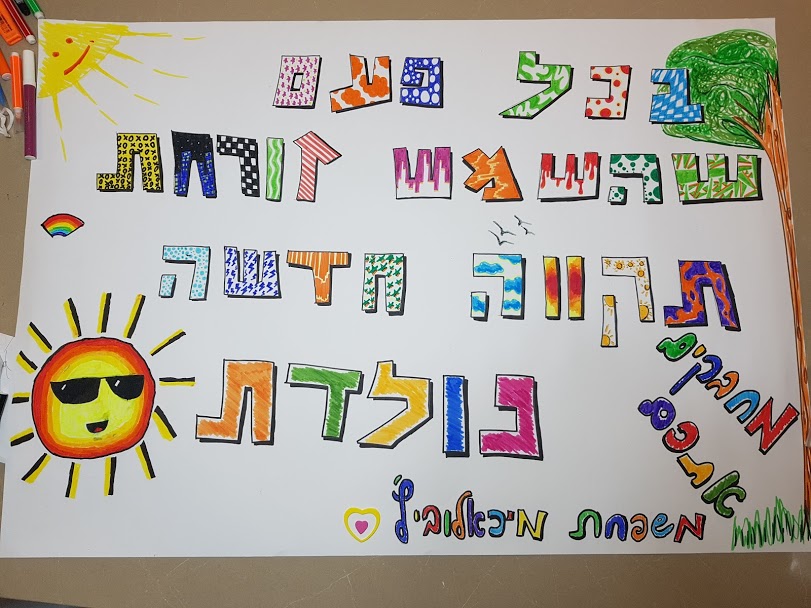 בכל פעם
שהשמש זורחת
תקווה חדשה
נולדת
מחבקים
אתכם
משפחת מיכאלוביץ'